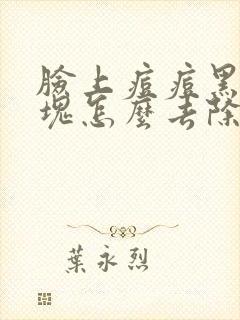 臉上痘痘黑
塊怎麼去除
葉永烈